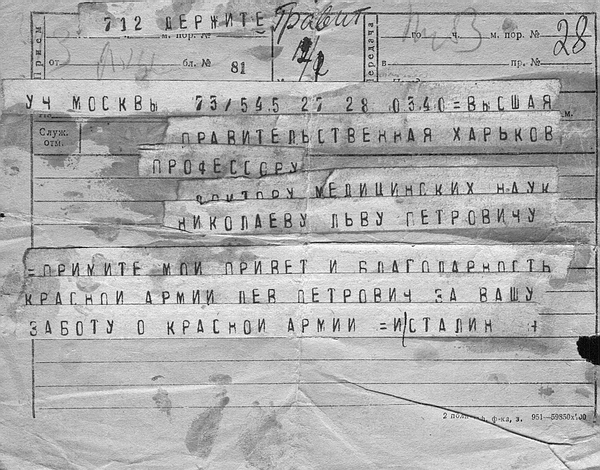 712 ДЕРЖИТЕ Правит
Прием м. пор. № Передача го ч. м. пор. № 28
от бл. № 81 в пр. №
УЧ МОСКВЫ 73/545 27 28 0340=ВЫСШАЯ
Служ. отм. ПРАВИТЕЛЬСТВЕННАЯ ХАРЬКОВ
ПРОФЕССОРУ
ДОКТОРУ МЕДИЦИНСКИХ НАУК
НИКОЛАЕВУ ЛЬВУ ПЕТРОВИЧУ
=ПРИМИТЕ МОЙ ПРИВЕТ И БЛАГОДАРНОСТЬ
КРАСНОЙ АРМИИ ЛЕВ ПЕТРОВИЧ ЗА ВАШУ
ЗАБОТУ О КРАСНОЙ АРМИИ =И СТАЛИН +
ф-ка, з. 951—59850х100